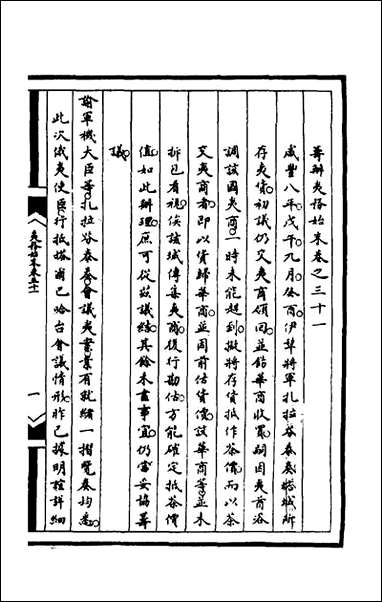 籌辦夷務始末卷之三十一
咸豐八年戊午九月癸酉伊犂將軍扎拉芬泰奏塔城所
存夷貨初議仍交夷商領回並飭華商收買嗣因夷酋浴
調該國夷商一時未能趕到擬將存貨抵作茶價而以茶
交夷商者即以貨歸華商並同前估貨價該華商等並未
拆包看視俟該城傳集夷商復行勘估方能確定抵茶價
值如此辦理庶可從茲議結其餘未盡事宜仍當妥協籌
議
諭軍機大臣等扎拉芬泰奏會議夷案業有就緒一摺覽奏均悉
此次俄夷使臣行抵塔爾巴哈台會議情形昨已據明誼詳細
夷務始末卷三十一
一